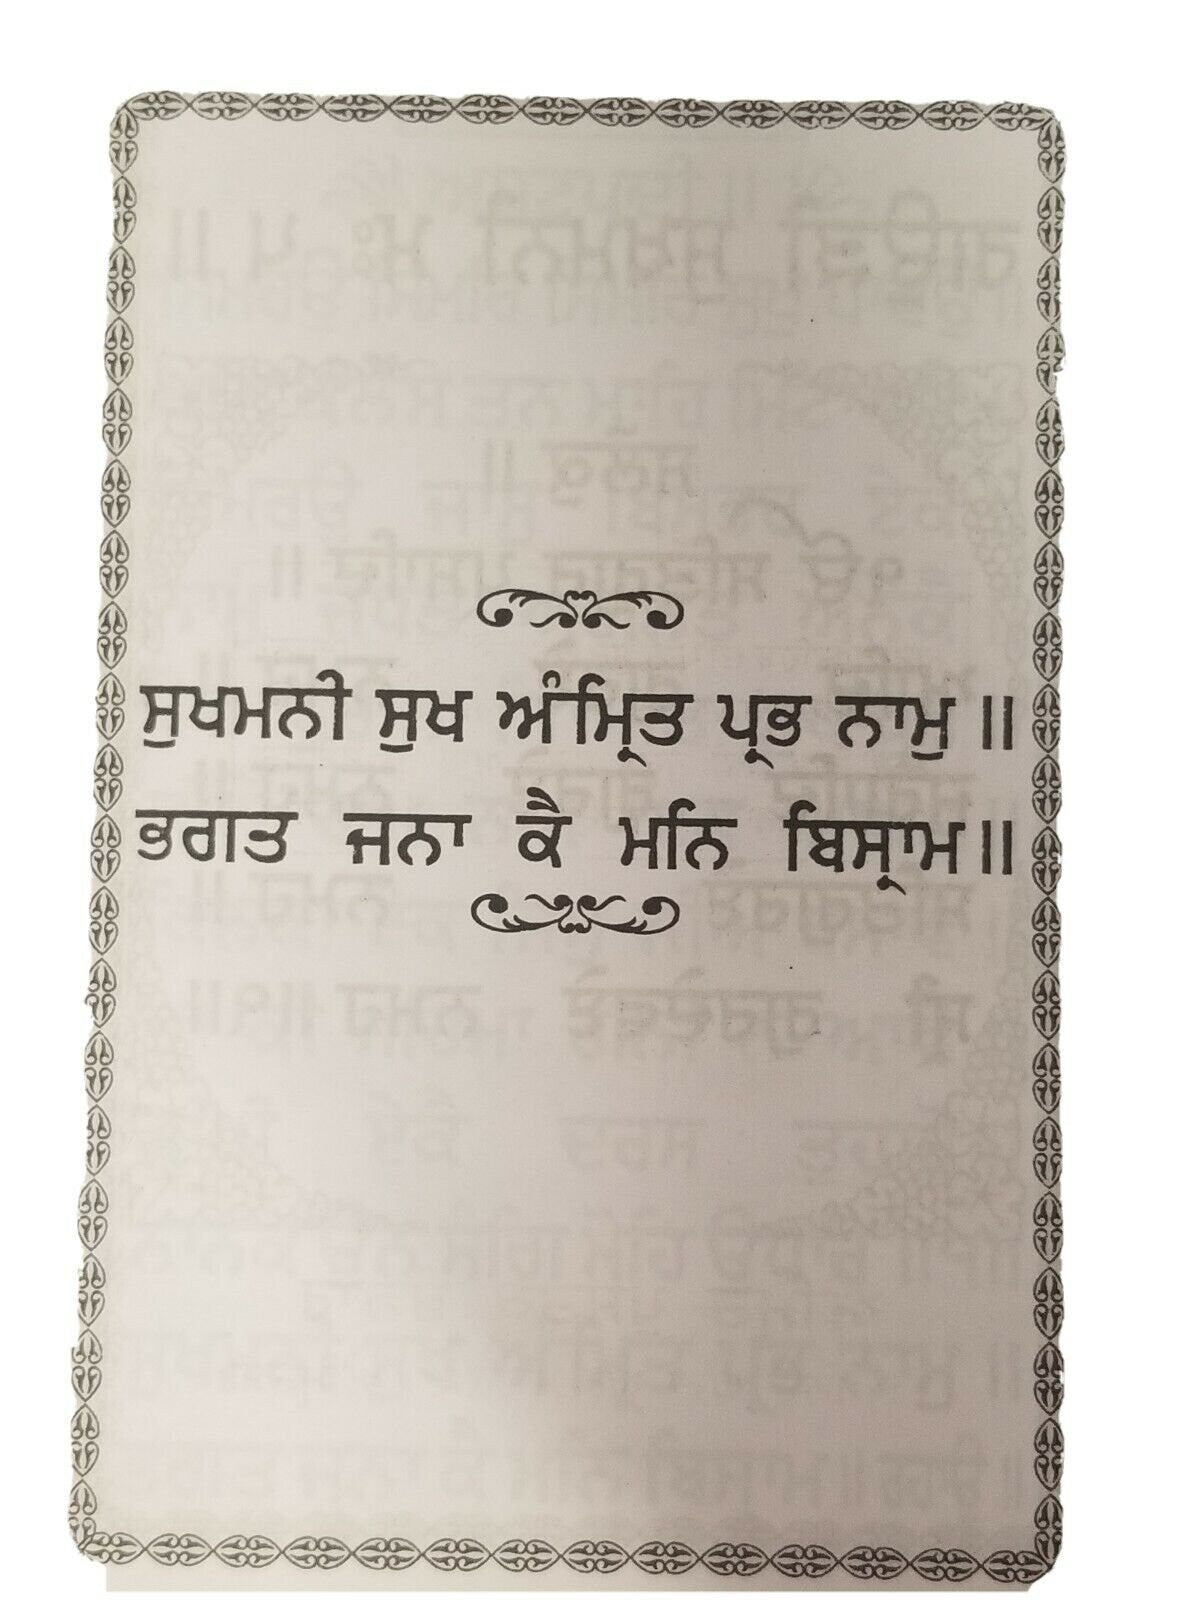 ਸੁਖਮਨੀ ਸੁਖ ਅੰਮ੍ਰਿਤ ਪ੍ਰਭ ਨਾਮੁ ॥
ਭਗਤ ਜਨਾ ਕੈ ਮਨਿ ਬਿਸ੍ਰਾਮ ॥